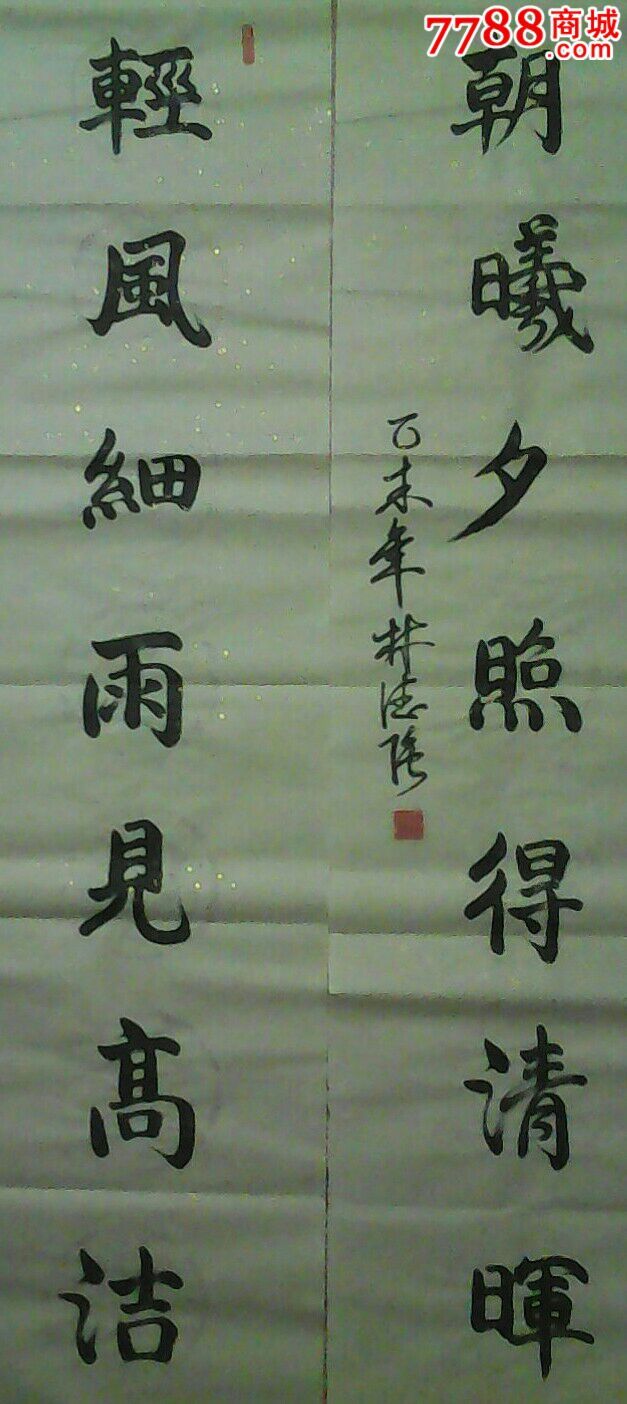 7788商城
.com
朝曦夕照得清暉
乙未年林德隆
輕風細雨見髙洁